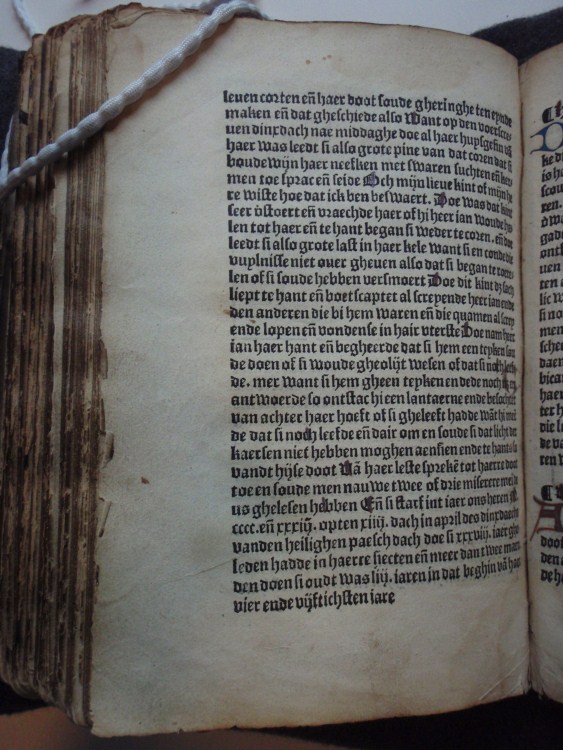 leuen corten en̄ haer doot soude gheringhe ten eynde
maken en̄ dat gheschiede also Want op den voerscre
uen dinxdach nae middaghe doe al haer huysgesin bi
haer was leedt si also grote pine van dat coren dat si
boudewijn haer neefken met swaren suchten en̄ ker
men toe sprac en̄ seide Och mijn lieue kint of mijn he
re wiste hoe dat ick ben beswaert. Doe was dat kint
seer v̄stoert en̄ vraechde haer of hi heer ian woude ha
len tot haer en̄ te hant began si weder te coren. en̄ doe
leedt si also grote last in haer kele want si en conde die
vuylnisse niet ouer gheuen also dat si began te roete
len of si soude hebben versmoert Doe dit kint dz sach
liept te hant en̄ voetscaptet al screyende heer ian ende
den anderen die bi hem waren en̄ die quamen al screy
ende lopen en̄ vondense in hair vterste Doe nam heer
ian haer hant en̄ begheerde dat si hem een teyken sou
de doen of si woude gheolijt wesen of dat si noch leef
de. mer want si hem gheen teyken en dede noch en
antwoerde so ontstac hi een lantaerne ende besochte
van achter haer hoeft of si gheleeft hadde wāt hi me
de dat si noch leefde en̄ dair om en soude si dat licht der
kaersen niet hebben moghen aensien ende te hants
vandt hijse doot Vā haer leste sprekē tot haerre doot
toe en soude men nauwe twee of drie miserere mei de
us ghelesen hebben En̄ si starf int iaer ons heren M.
cccc. en̄ xxxiij. opten xiiij. dach in april des dinxdaechs
vanden heilighen paesch dach doe si xxxviij. iaer ghe
leden hadde in haerre siecten en̄ meer dan twee maen
den doen si oudt was liij. iaren in dat beghin vā haer
vier ende vijftichsten iare